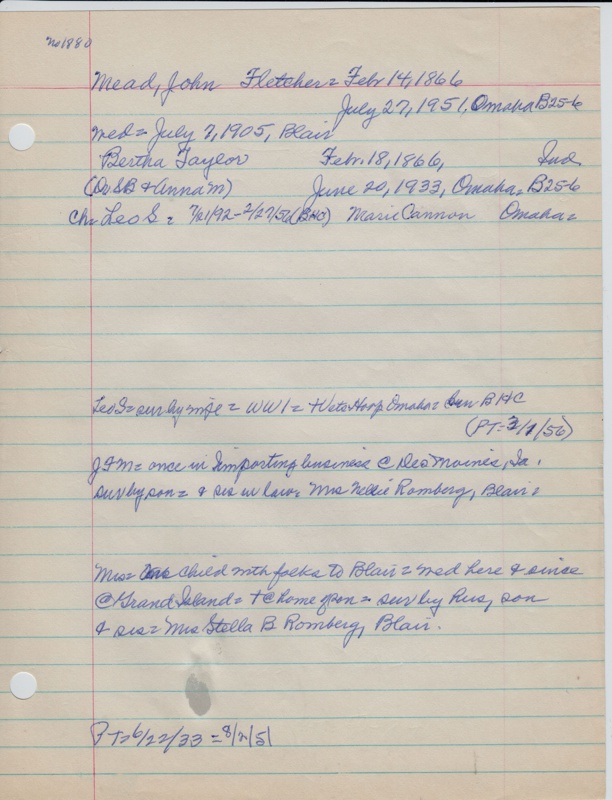 No 1880
Mead, John Fletcher = Febr 14, 1866
July 27, 1951, Omaha B25-6
Med = July 7, 1905, Blair
Bertha Taylor Feb. 18, 1866, Ind
(Dr SB & Anna M) June 20, 1933, Omaha = B25-6
Ch = Leo S = 7/21/92 - 2/27/56 (BHC) Marie Cannon Omaha =
Leo S = sur by wife = WW1 = + Vets Hosp Omaha = bur B H C
(PT = 3/1/56)
J F M = once in Importing business @ Des Moines, Ia.
sur by son = & sis in law = Mrs Nellie Romberg, Blair.
Mrs = child with folks to Blair = med here & since
@ Grand Island = + @ home of son = sur by hus, son
& sis = Mrs Stella B Romberg, Blair.
PT = 6/22/33 = 8/2/51